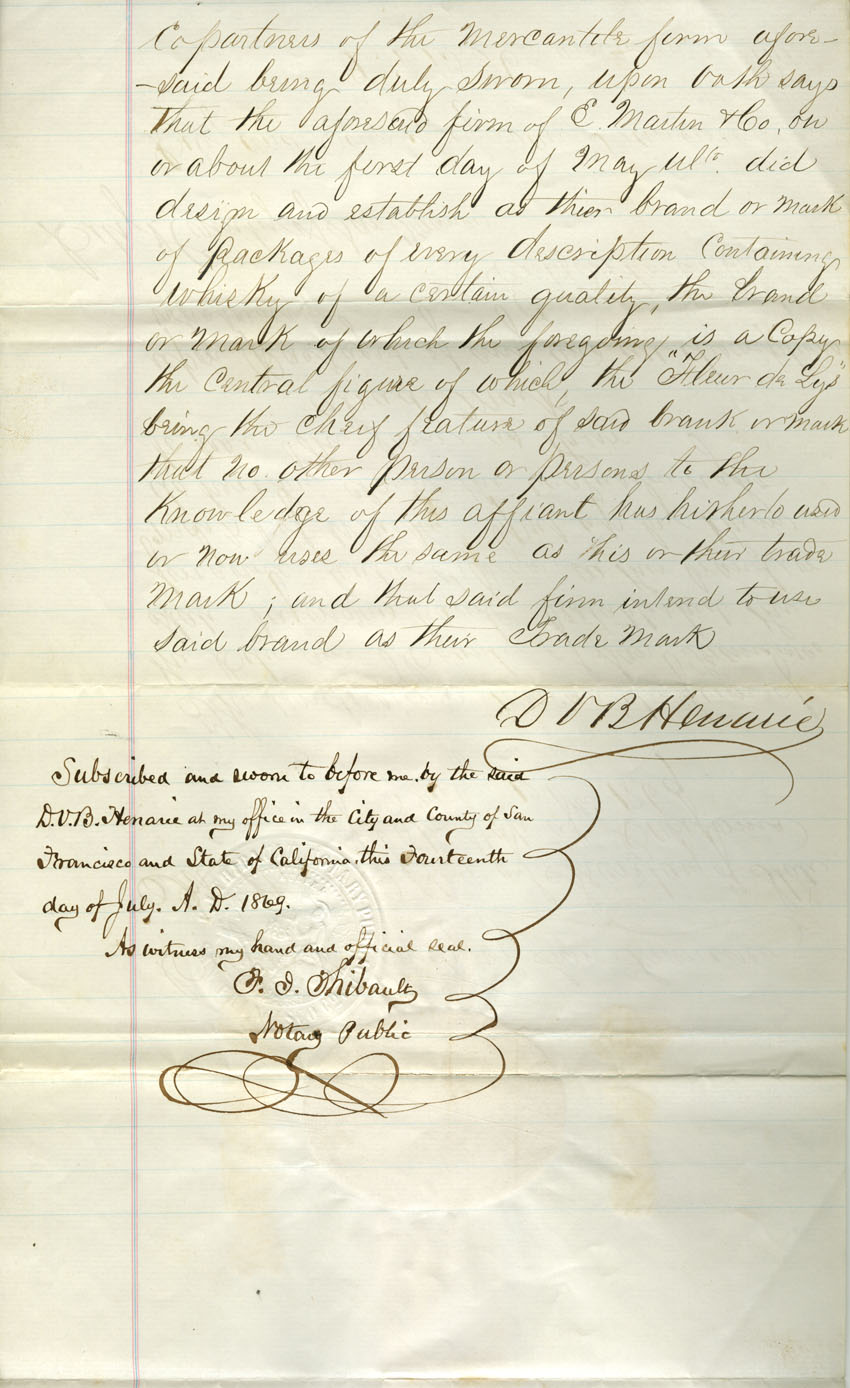 Copartners of the Mercantile firm afore-
-said being duly sworn, upon oath says
that the aforesaid firm of E. Martin & Co, on
or about the first day of May ulto. did
design and establish as thier brand or mark
of packages of every description Containing
whisky of a certain quality, the brand
or mark of which the foregoing is a Copy
the Central figure of which, the "Fleur de Lys"
being the cheif feature of said brank or mark
that no other person or persons to the
Knowledge of this affiant has hitherto used
or now uses the same as his or their trade
Mark; and that said firm intend to use
said brand as their Trade Mark
D V B Henarie
Subscribed and sworn to before me. by the said
D.V.B. Henarie at my office in the City and County of San
Francisco and State of California. this Fourteenth
day of July. A. D. 1869.
As witness my hand and official seal.
F. J. Thibault
Notary Public